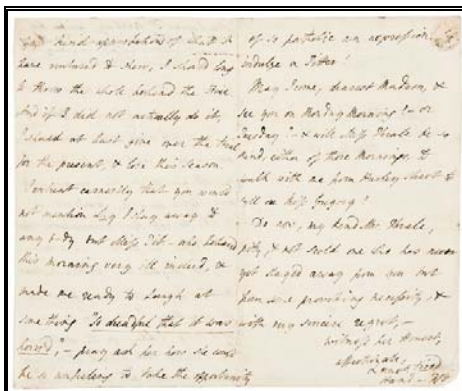 kind approbation of what I
have ventured to shew, I should long
to throw the whole behind the
And if I did not actually do it,
I should at least give over the trial
for the present, & lose this season.
I entreat earnestly that you would
not mention away to
any body but Miss Tit - who behaved
this morning very ill indeed, &
made me ready to Laugh at
some thing "so dreadful that it was
horrid", - pray ask her how she could
be so unfeeling to take the opportunity
of so pathetic an expression to
indulge a Titter!
May I come, dearest Madam, &
see you on Monday Morning? - or
Tuesday? - & will Miss Thrale be so
kind, either of those Mornings, to
walk with me from Street to
call on Miss Gregory?
Do now, my kind Mrs. Thrale,
pity, & not scold one who has never
yet stayed away from you but
from some provoking necessity, &
with my sincere regret, -
witness her Honest,
affectionate,
& most